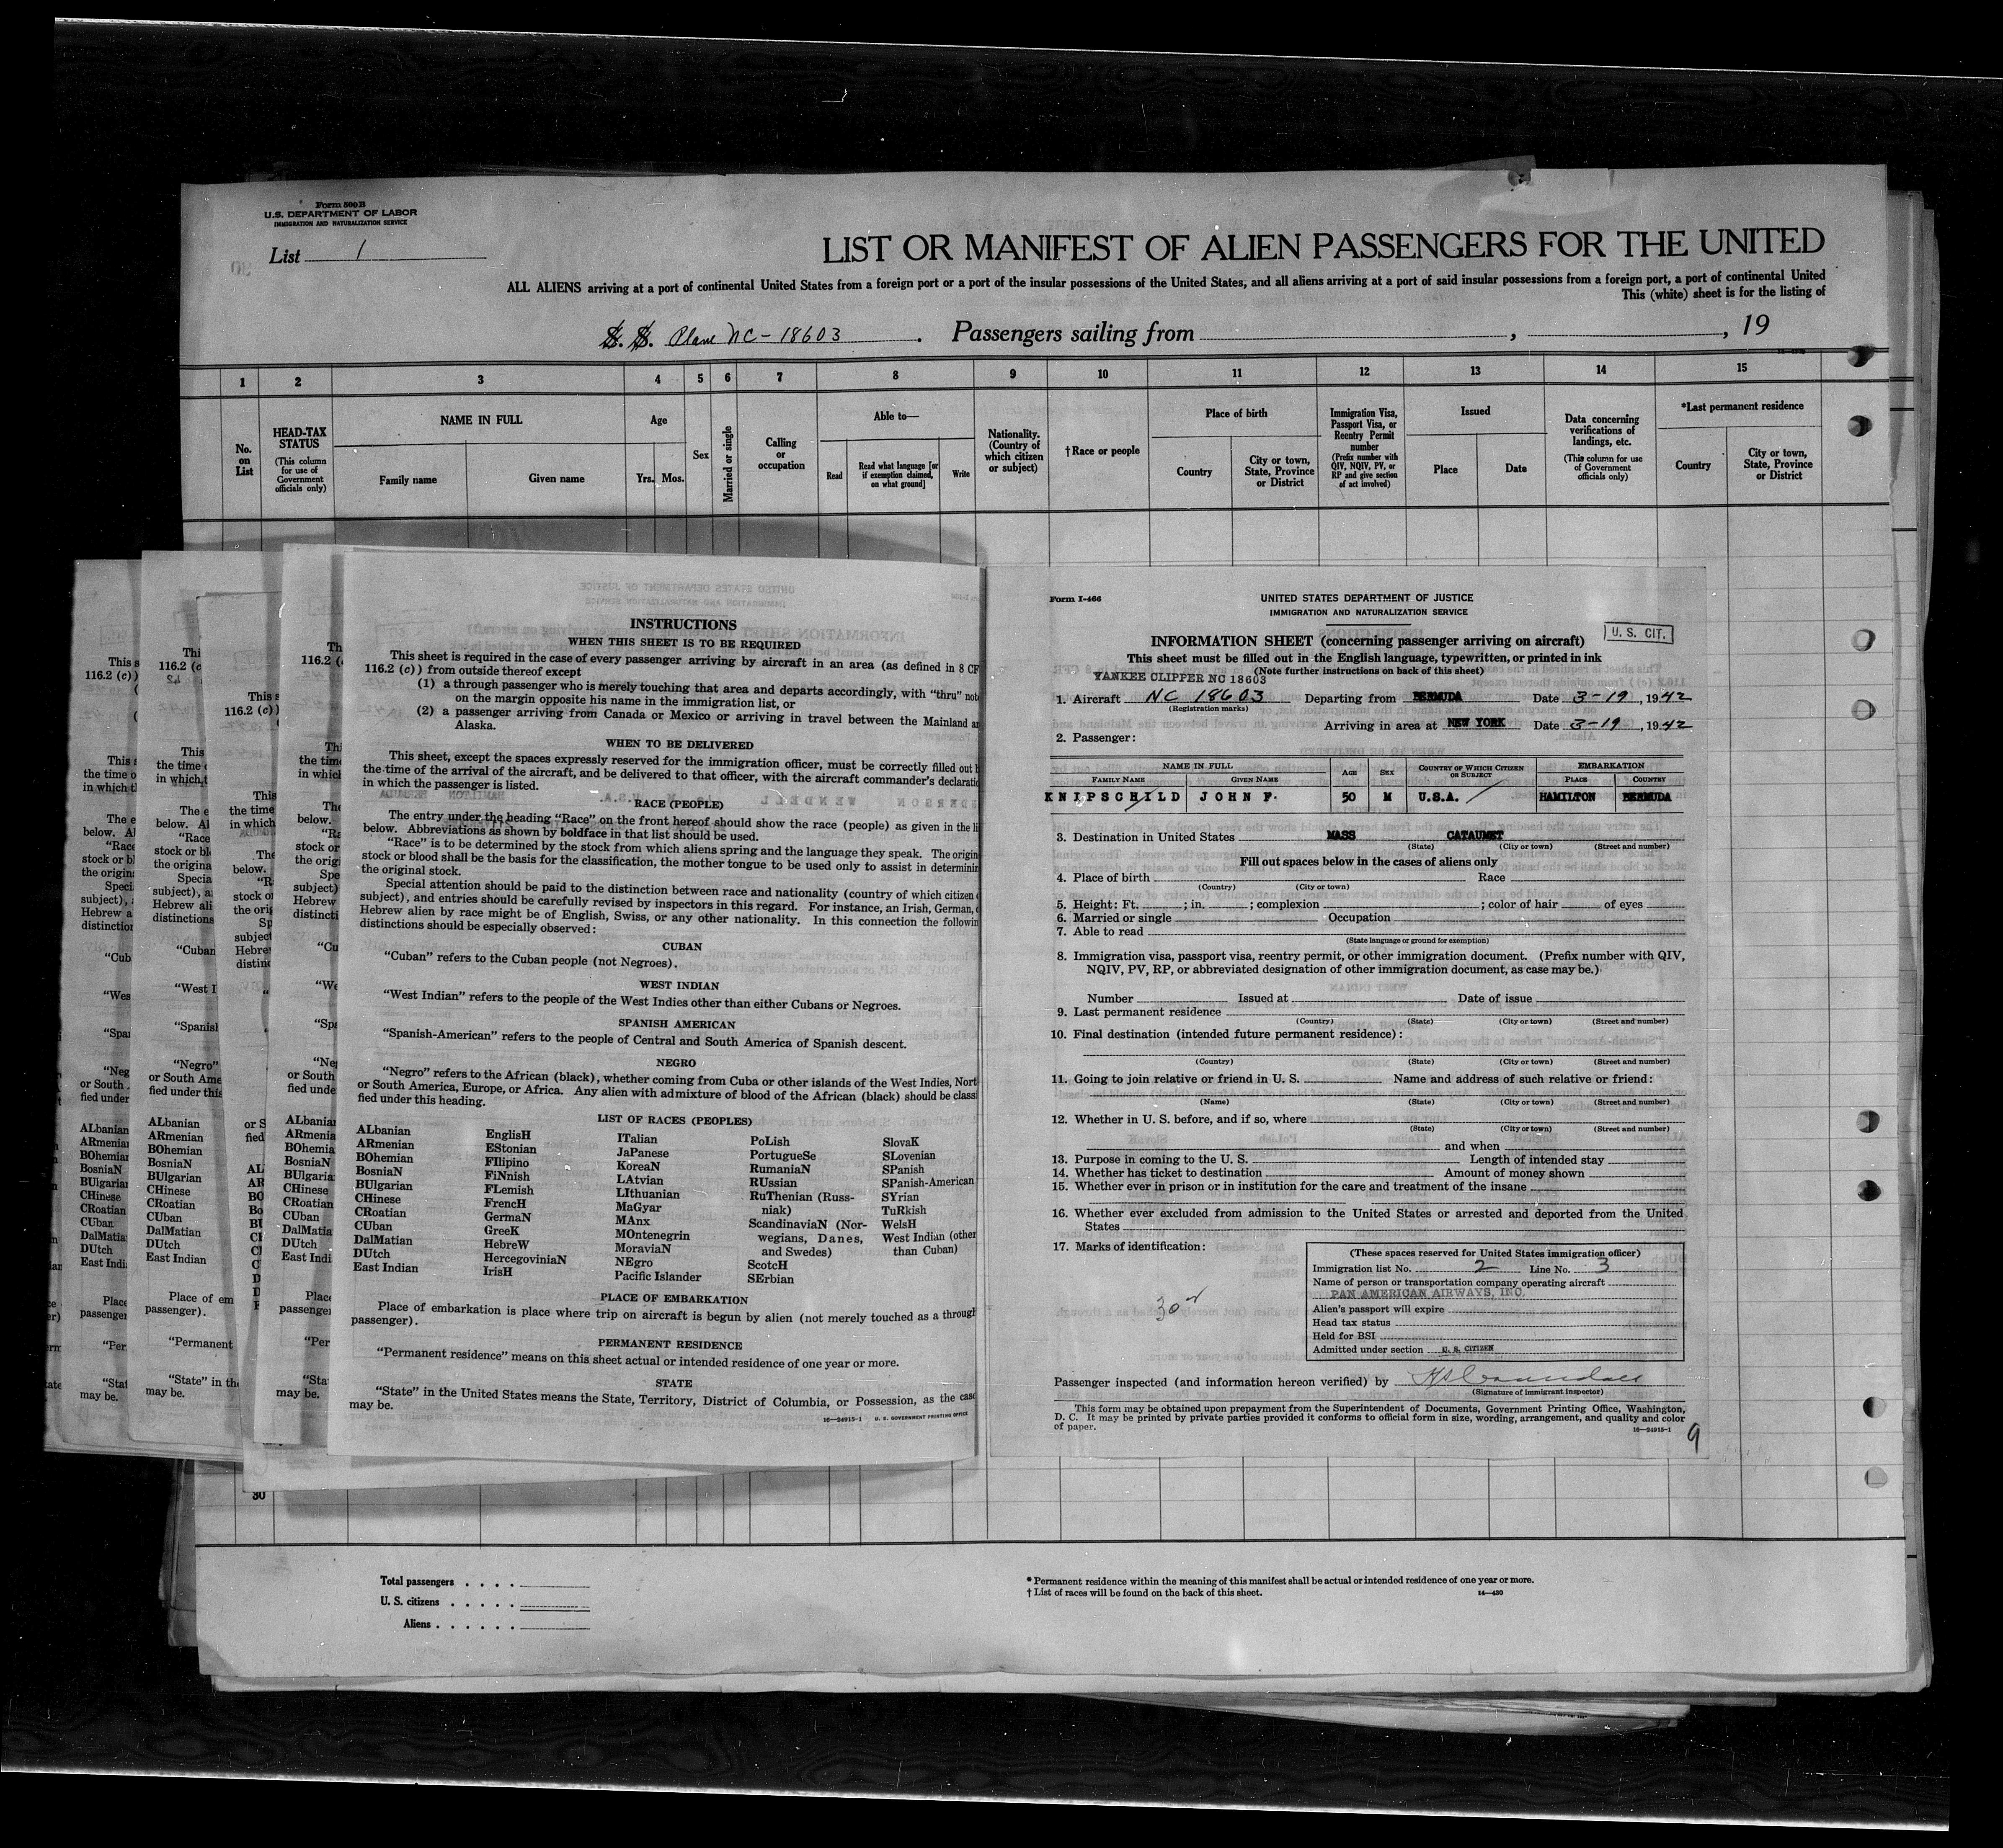 Form 500B
U.S. DEPARTMENT OF LABOR
IMMIGRATION AND NATURALIZATION SERVICE
List 1
LIST OR MANIFEST OF ALIEN PASSENGERS FOR THE UNITED
ALL ALIENS arriving at a port of continental United States from a foreign port or a port of the insular possessions of the United States, and all aliens arriving at a port of said insular possessions from a foreign port, a port of continental United
This (white) sheet is for the listing of
S. S. Plane NC-18603. Passengers sailing from , , 19
1 2 3 4 5 6 7 8 9 10 11 12 13 14 15
No. on List
HEAD-TAX STATUS
(This column for use of Government officials only)
NAME IN FULL
Family name Given name
Age
Yrs. Mos.
Sex
Married or single
Calling or occupation
Able to—
Read
Read what language [or if exemption claimed, on what ground]
Write
Nationality. (Country of which citizen or subject)
†Race or people
Place of birth
Country
City or town, State, Province or District
Immigration Visa, Passport Visa, or Reentry Permit number
(Prefix number with QIV, NQIV, PV, or RP and give section of act involved)
Issued
Place Date
Data concerning verifications of landings, etc.
(This column for use of Government officials only)
*Last permanent residence
Country
City or town, State, Province or District
INSTRUCTIONS
WHEN THIS SHEET IS TO BE REQUIRED
This sheet is required in the case of every passenger arriving by aircraft in an area (as defined in 8 CF
116.2 (c)) from outside thereof except
(1) a through passenger who is merely touching that area and departs accordingly, with "thru" note
on the margin opposite his name in the immigration list, or
(2) a passenger arriving from Canada or Mexico or arriving in travel between the Mainland an
Alaska.
WHEN TO BE DELIVERED
This sheet, except the spaces expressly reserved for the immigration officer, must be correctly filled out b
the time of the arrival of the aircraft, and be delivered to that officer, with the aircraft commander's declaratio
in which the passenger is listed.
RACE (PEOPLE)
The entry under the heading "Race" on the front hereof should show the race (people) as given in the li
below. Abbreviations as shown by boldface in that list should be used.
"Race" is to be determined by the stock from which aliens spring and the language they speak. The origin
stock or blood shall be the basis for the classification, the mother tongue to be used only to assist in determinin
the original stock.
Special attention should be paid to the distinction between race and nationality (country of which citizen o
subject), and entries should be carefully revised by inspectors in this regard. For instance, an Irish, German, o
Hebrew alien by race might be of English, Swiss, or any other nationality. In this connection the followin
distinctions should be especially observed:
CUBAN
"Cuban" refers to the Cuban people (not Negroes).
WEST INDIAN
"West Indian" refers to the people of the West Indies other than either Cubans or Negroes.
SPANISH AMERICAN
"Spanish-American" refers to the people of Central and South America of Spanish descent.
NEGRO
"Negro" refers to the African (black), whether coming from Cuba or other islands of the West Indies, Nort
or South America, Europe, or Africa. Any alien with admixture of blood of the African (black) should be class
fied under this heading.
LIST OF RACES (PEOPLES)
ALbanian
ARmenian
BOhemian
BosniaN
BUlgarian
CHinese
CRoatian
CUban
DalMatian
DUtch
East Indian
EnglisH
EStonian
FIlipino
FiNnish
FLemish
FrencH
GermaN
GreeK
HebreW
HercegoviniaN
IrisH
ITalian
JaPanese
KoreaN
LAtvian
LIthuanian
MaGyar
MAnx
MOntenegrin
MoraviaN
NEgro
Pacific Islander
PoLish
PortugueSe
RumaniaN
RUssian
RuThenian (Russ-
niak)
ScandinaviaN (Nor-
wegians, Danes,
and Swedes)
ScotcH
SErbian
SlovaK
SLovenian
SPanish
SPanish-American
SYrian
TuRkish
WelsH
West Indian (other
than Cuban)
PLACE OF EMBARKATION
Place of embarkation is place where trip on aircraft is begun by alien (not merely touched as a through
passenger).
PERMANENT RESIDENCE
"Permanent residence" means on this sheet actual or intended residence of one year or more.
STATE
"State" in the United States means the State, Territory, District of Columbia, or Possession, as the case
may be.
16—24915-1 U. S. GOVERNMENT PRINTING OFFICE
Form I-466
UNITED STATES DEPARTMENT OF JUSTICE
IMMIGRATION AND NATURALIZATION SERVICE
U. S. CIT.
INFORMATION SHEET (concerning passenger arriving on aircraft)
This sheet must be filled out in the English language, typewritten, or printed in ink
(Note further instructions on back of this sheet)
YANKEE CLIPPER NC 18603
1. Aircraft NC 18603 Departing from BERMUDA Date 3-19, 1942
(Registration marks)
Arriving in area at NEW YORK Date 3-19, 1942
2. Passenger:
NAME IN FULL AGE SEX COUNTRY OF WHICH CITIZEN OR SUBJECT EMBARKATION
FAMILY NAME GIVEN NAME PLACE COUNTRY
KNIPSCHILD JOHN F. 50 M U.S.A. HAMILTON BERMUDA
3. Destination in United States MASS CATAUMET
(State) (City or town) (Street and number)
Fill out spaces below in the cases of aliens only
4. Place of birth Race
(Country) (City or town)
5. Height: Ft. ; in. ; complexion ; color of hair of eyes
6. Married or single Occupation
7. Able to read
(State language or ground for exemption)
8. Immigration visa, passport visa, reentry permit, or other immigration document. (Prefix number with QIV,
NQIV, PV, RP, or abbreviated designation of other immigration document, as case may be.)
Number Issued at Date of issue
9. Last permanent residence
(Country) (State) (City or town) (Street and number)
10. Final destination (intended future permanent residence):
(Country) (State) (City or town) (Street and number)
11. Going to join relative or friend in U. S. Name and address of such relative or friend:
(Name) (State) (City or town) (Street and number)
12. Whether in U. S. before, and if so, where
(State) (City or town) (Street and number)
and when
13. Purpose in coming to the U. S. Length of intended stay
14. Whether has ticket to destination Amount of money shown
15. Whether ever in prison or in institution for the care and treatment of the insane
16. Whether ever excluded from admission to the United States or arrested and deported from the United
States
17. Marks of identification:
(These spaces reserved for United States immigration officer)
Immigration list No. 2 Line No. 3
Name of person or transportation company operating aircraft
PAN AMERICAN AIRWAYS, INC.
Alien's passport will expire
Head tax status
Held for BSI
Admitted under section U. S. CITIZEN
Passenger inspected (and information hereon verified) by
(Signature of immigrant inspector)
This form may be obtained upon prepayment from the Superintendent of Documents, Government Printing Office, Washington,
D. C. It may be printed by private parties provided it conforms to official form in size, wording, arrangement, and quality and color
of paper.
16—24915-1
9
30
Total passengers
U. S. citizens
Aliens
* Permanent residence within the meaning of this manifest shall be actual or intended residence of one year or more.
† List of races will be found on the back of this sheet.
14—430